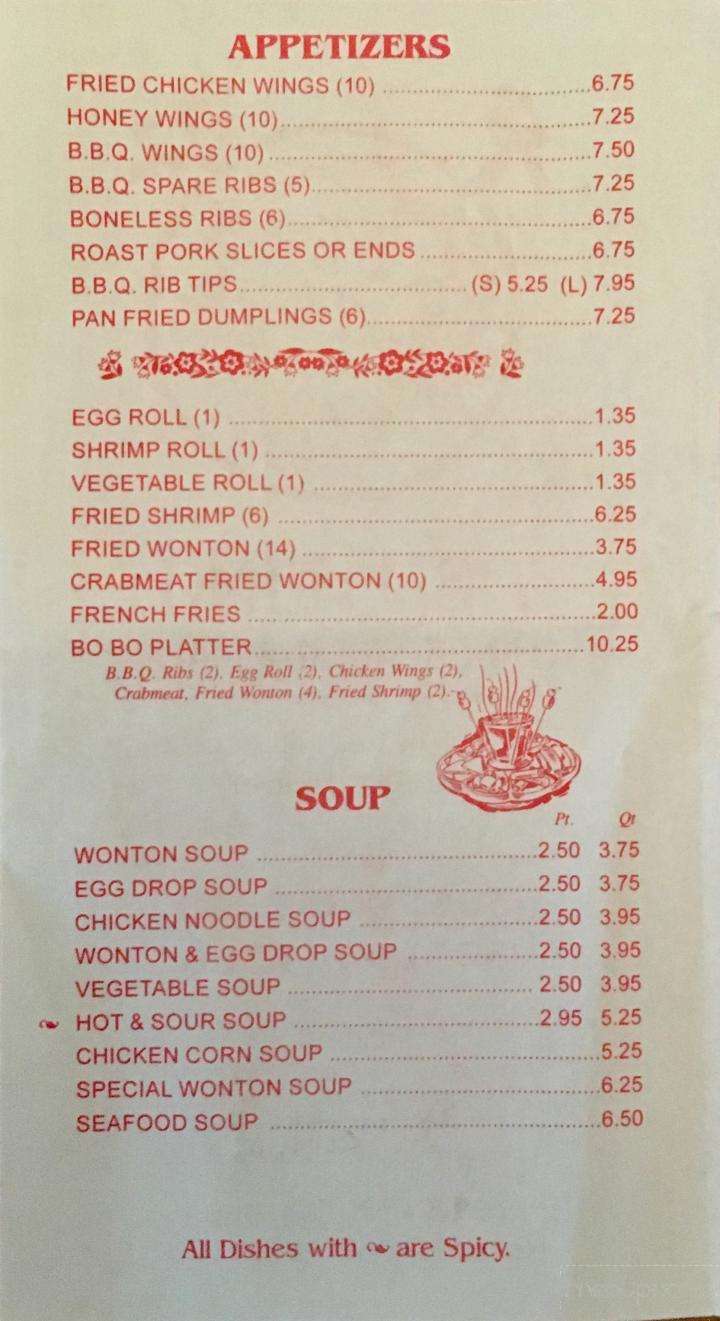 APPETIZERS
FRIED CHICKEN WINGS (10) ................................6.75
HONEY WINGS (10)................................7.25
B.B.Q. WINGS (10) ................................7.50
B.B.Q. SPARE RIBS (5)................................7.25
BONELESS RIBS (6)................................6.75
ROAST PORK SLICES OR ENDS ................................6.75
B.B.Q. RIB TIPS................................(S) 5.25 (L) 7.95
PAN FRIED DUMPLINGS (6)................................7.25
EGG ROLL (1) ................................1.35
SHRIMP ROLL (1) ................................1.35
VEGETABLE ROLL (1) ................................1.35
FRIED SHRIMP (6) ................................6.25
FRIED WONTON (14) ................................3.75
CRABMEAT FRIED WONTON (10) ................................4.95
FRENCH FRIES ................................2.00
BO BO PLATTER................................10.25
B.B.Q. Ribs (2), Egg Roll (2), Chicken Wings (2),
Crabmeat, Fried Wonton (4), Fried Shrimp (2)
SOUP
Pt. Qt
WONTON SOUP ................................2.50 3.75
EGG DROP SOUP ................................2.50 3.75
CHICKEN NOODLE SOUP ................................2.50 3.95
WONTON & EGG DROP SOUP ................................2.50 3.95
VEGETABLE SOUP ................................2.50 3.95
HOT & SOUR SOUP ................................2.95 5.25
CHICKEN CORN SOUP ................................5.25
SPECIAL WONTON SOUP ................................6.25
SEAFOOD SOUP ................................6.50
All Dishes with are Spicy.